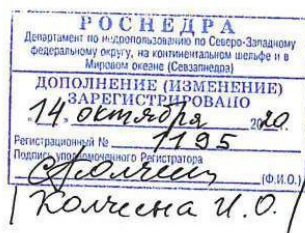 РОСНЕДРА
Департамент по недропользованию по Северо-Западному
федеральному округу, на континентальном шельфе и в
Мировом океане (Севзапнедра)
ДОПОЛНЕНИЕ (ИЗМЕНЕНИЕ)
ЗАРЕГИСТРИРОВАНО
„14„ октября 2020
Регистрационный № 1195
Подпись уполномоченного Регистратора
(Ф.И.О.)
И.О.